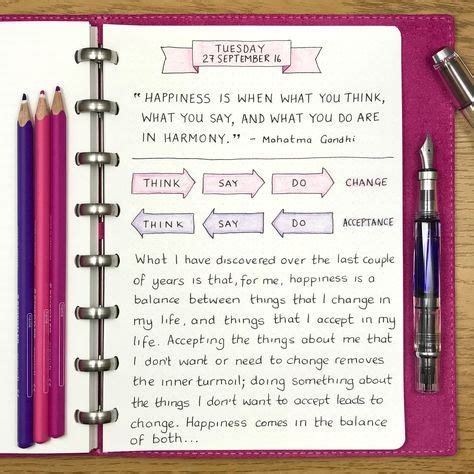 TUESDAY
27 SEPTEMBER 16
"HAPPINESS IS WHEN WHAT YOU THINK,
WHAT YOU SAY, AND WHAT YOU DO ARE
IN HARMONY." - Mahatma Gandhi
THINK SAY DO CHANGE
THINK SAY DO ACCEPTANCE
What I have discovered over the last couple
of years is that, for me, happiness is a
balance between things that I change in
my life, and things that I accept in my
life. Accepting the things about me that
I don't want or need to change removes
the inner turmoil; doing something about
the things I don't want to accept leads to
change. Happiness comes in the balance
of both...